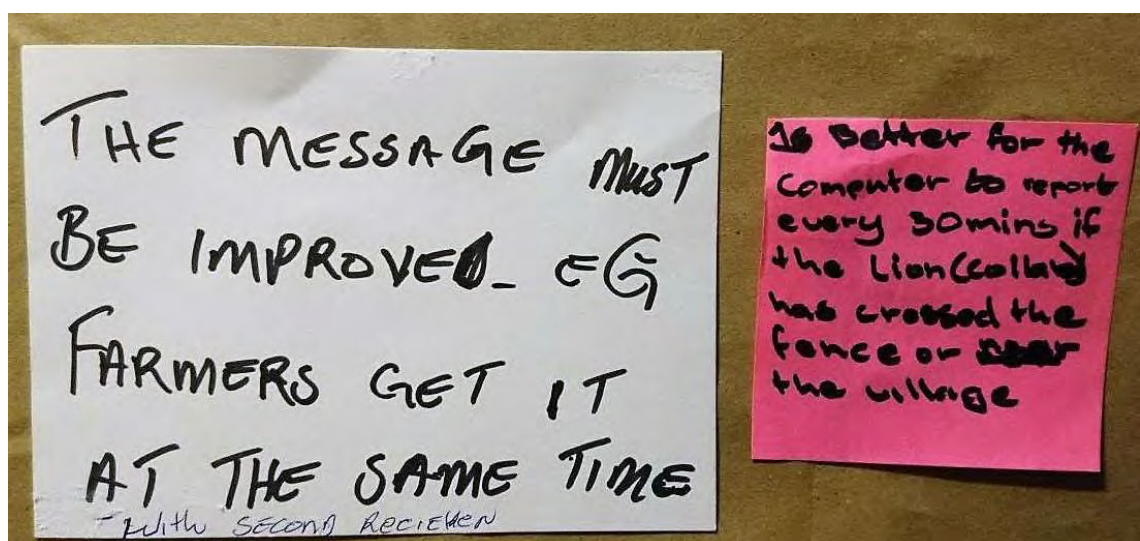 THE MESSAGE MUST
BE IMPROVED_ EG
FARMERS GET IT
AT THE SAME TIME
- With SECOND RECIEVEN
Is Better for the
Computer to report
every 30mins if
the Lion(collar)
has crossed the
fence or
the village